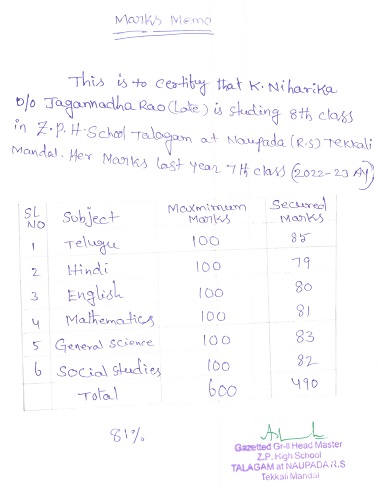 Marks Memo
This is to certify that K. Niharika
D/o Jagannadha Rao (Late) is studing 8th class
in Z.P.H. School Talagam at Naupada (R.S) Tekkali
Mandal. Her Marks last year 7th class (2022-23 AY)
SL NO Subject Maxmimum Marks Secured Marks
1 Telugu 100 85
2 Hindi 100 79
3 English 100 80
4 Mathematics 100 81
5 General Science 100 83
6 Social studies 100 82
Total 600 490
81%
Gazetted Gr-II Head Master
Z.P. High School
TALAGAM at NAUPADA R.S
Tekkali Mandal